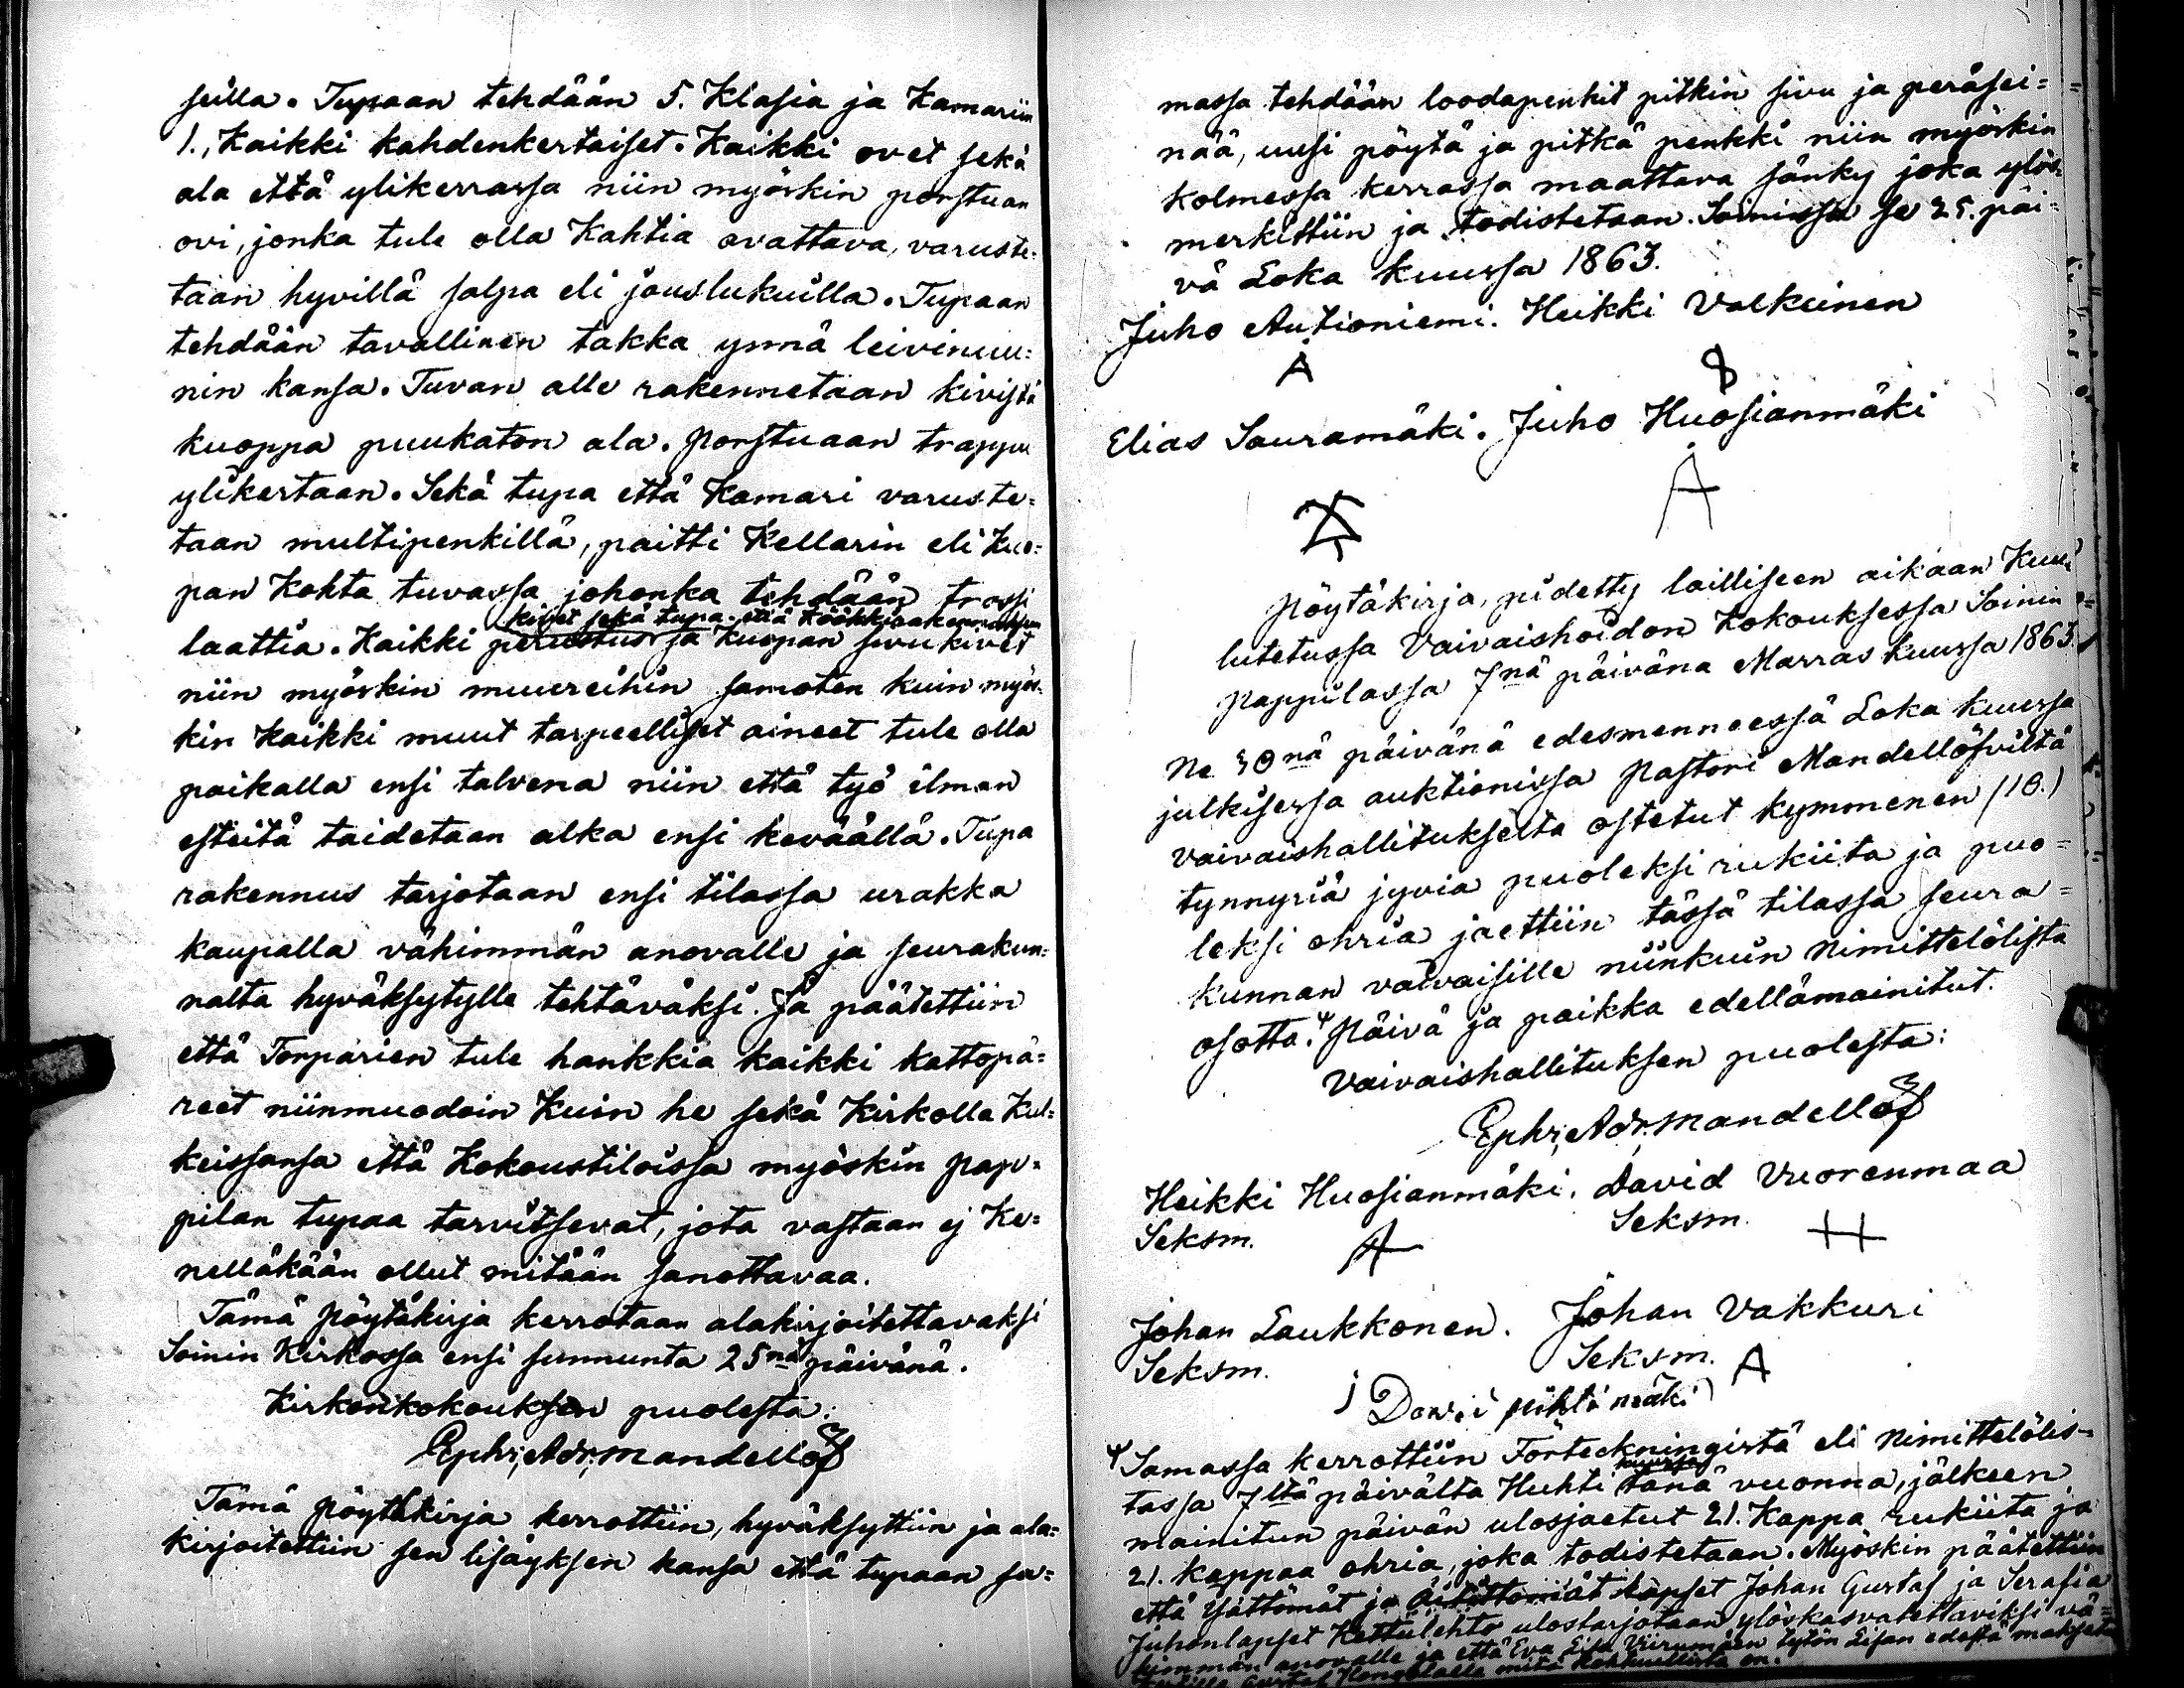 seilla. Tupaan tehdään 5. Klasia ja Kamariin
1., Kaikki kahdenkertaiset. Kaikki ovet sekä
ala että ylikerrassa niin myöskin porstuan
ovi, jonka tule olla Kahtia avattava, varuste=
taan hyvillä salpa eli jouslukuilla. Tupaan
tehdään tavallinen takka ynnä leivinuu=
nin kansa. Tuvan alle rakennetaan kivistä
kuoppa puukaton ala. Porstuaan trappu
ylikertaan. Sekä tupa että Kamari varuste=
taan multipenkillä, paitti Kellarin eli Kuo=
pan Kohta tuvassa johonka tehdään trossi
kivet sekä tupa että köökkirakennuksen
laattia. Kaikki perustus ja Kuopan sivukivet
niin myöskin muureihin samoten kuin myös=
kin Kaikki muut tarpeelliset aineet tule olla
paikalla ensi talvena niin että työ ilman
esteitä taidetaan alka ensi keväällä. Tupa
rakennus tarjotaan ensi tilassa urakka
kaupalla vähimmän anovalle ja seurakun=
nalta hyväksytylle tehtäväksi. Ja päätettiin
että Torparien tule hankkia kaikki kattopä=
reet niinmuodoin Kuin he sekä Kirkolla Kul=
keissansa että Kokoustiloissa myöskin pap=
pilan tupaa tarvitsevat, jota vastaan ej Ke=
nelläkään ollut mitään sanottavaa.
Tämä Pöytäkirja kerrotaan alakirjoitettavaksi
Soinin Kirkossa ensi sunnunta 25nä päivänä.
Kirkonkokouksen puolesta:
Ephr; Adr; Mandellöf
Tämä Pöytäkirja kerrottiin, hyväksyttiin ja ala=
kirjoitettiin sen lisäyksen kansa että tupaan sa=
massa tehdään loodapenkit pitkin sivu ja peräsei=
nää, uusi pöytä ja pitkä penkki niin myöskin
kolmessa kerrassa maattava sänky joka ylös=
merkittiin ja todistetaan. Soinissa se 25. päi=
vä Loka kuussa 1863.
Juho Autioniemi. Heikki Valkeinen
Elias Sauramäki. Juho Huosianmäki
Pöytäkirja, pidetty lailliseen aikaan Kuu=
lutetussa Vaivaishoidon Kokouksessa Soinin
Pappilassa 7nä päivänä Marras kuussa 1863.
Ne 30nä päivänä edesmenneessä Loka kuussa
julkisessa auktionissa Pastori Mandellöfviltä
vaivaishallitukselta ostetut kymmenen (10.)
tynnyriä jyvia puoleksi rukiita ja puo=
leksi ohria jaettiin tässä tilassa seura=
kunnan vaivaisille niinkuin Nimittelölista
osotta. Päivä ja paikka edellämainitut.
Vaivaishallituksen puolesta:
Ephr; Adr; Mandellöf
Heikki Huosianmäki. David Vuorenmaa
Seksm. Seksm.
Johan Laukkonen. Johan Vakkuri
Seksm. Seksm.
Dawi pihti mäki
Samassa kerrottiin Förteckningistä eli Nimittelölis=
kuussa
tassa 7ltä päivältä Huhti tänä vuonna, jälkeen
mainitun päivän ulosjaetut 21. Kappa rukiita ja
21. kappaa ohria, joka todistetaan. Myöskin päätettiin
että Isättömät ja Äitittömät lapset Johan Gustaf ja Serafia
Juhonlapset Kettulehto ulostarjotaan ylöskasvatettaviksi vä=
himmän anovalle ja että Eva Lisa Viirumäen tytön Lisan edestä maksetta
Gustaf mitä Kohtuullista on.